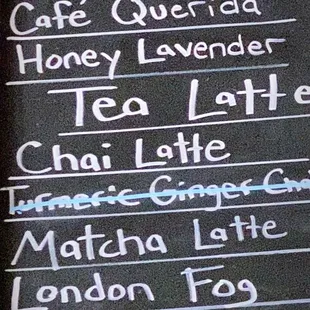 Café Querida
Honey Lavender
Tea Latte
Chai Latte
Turmeric Ginger Chai
Matcha Latte
London Fog